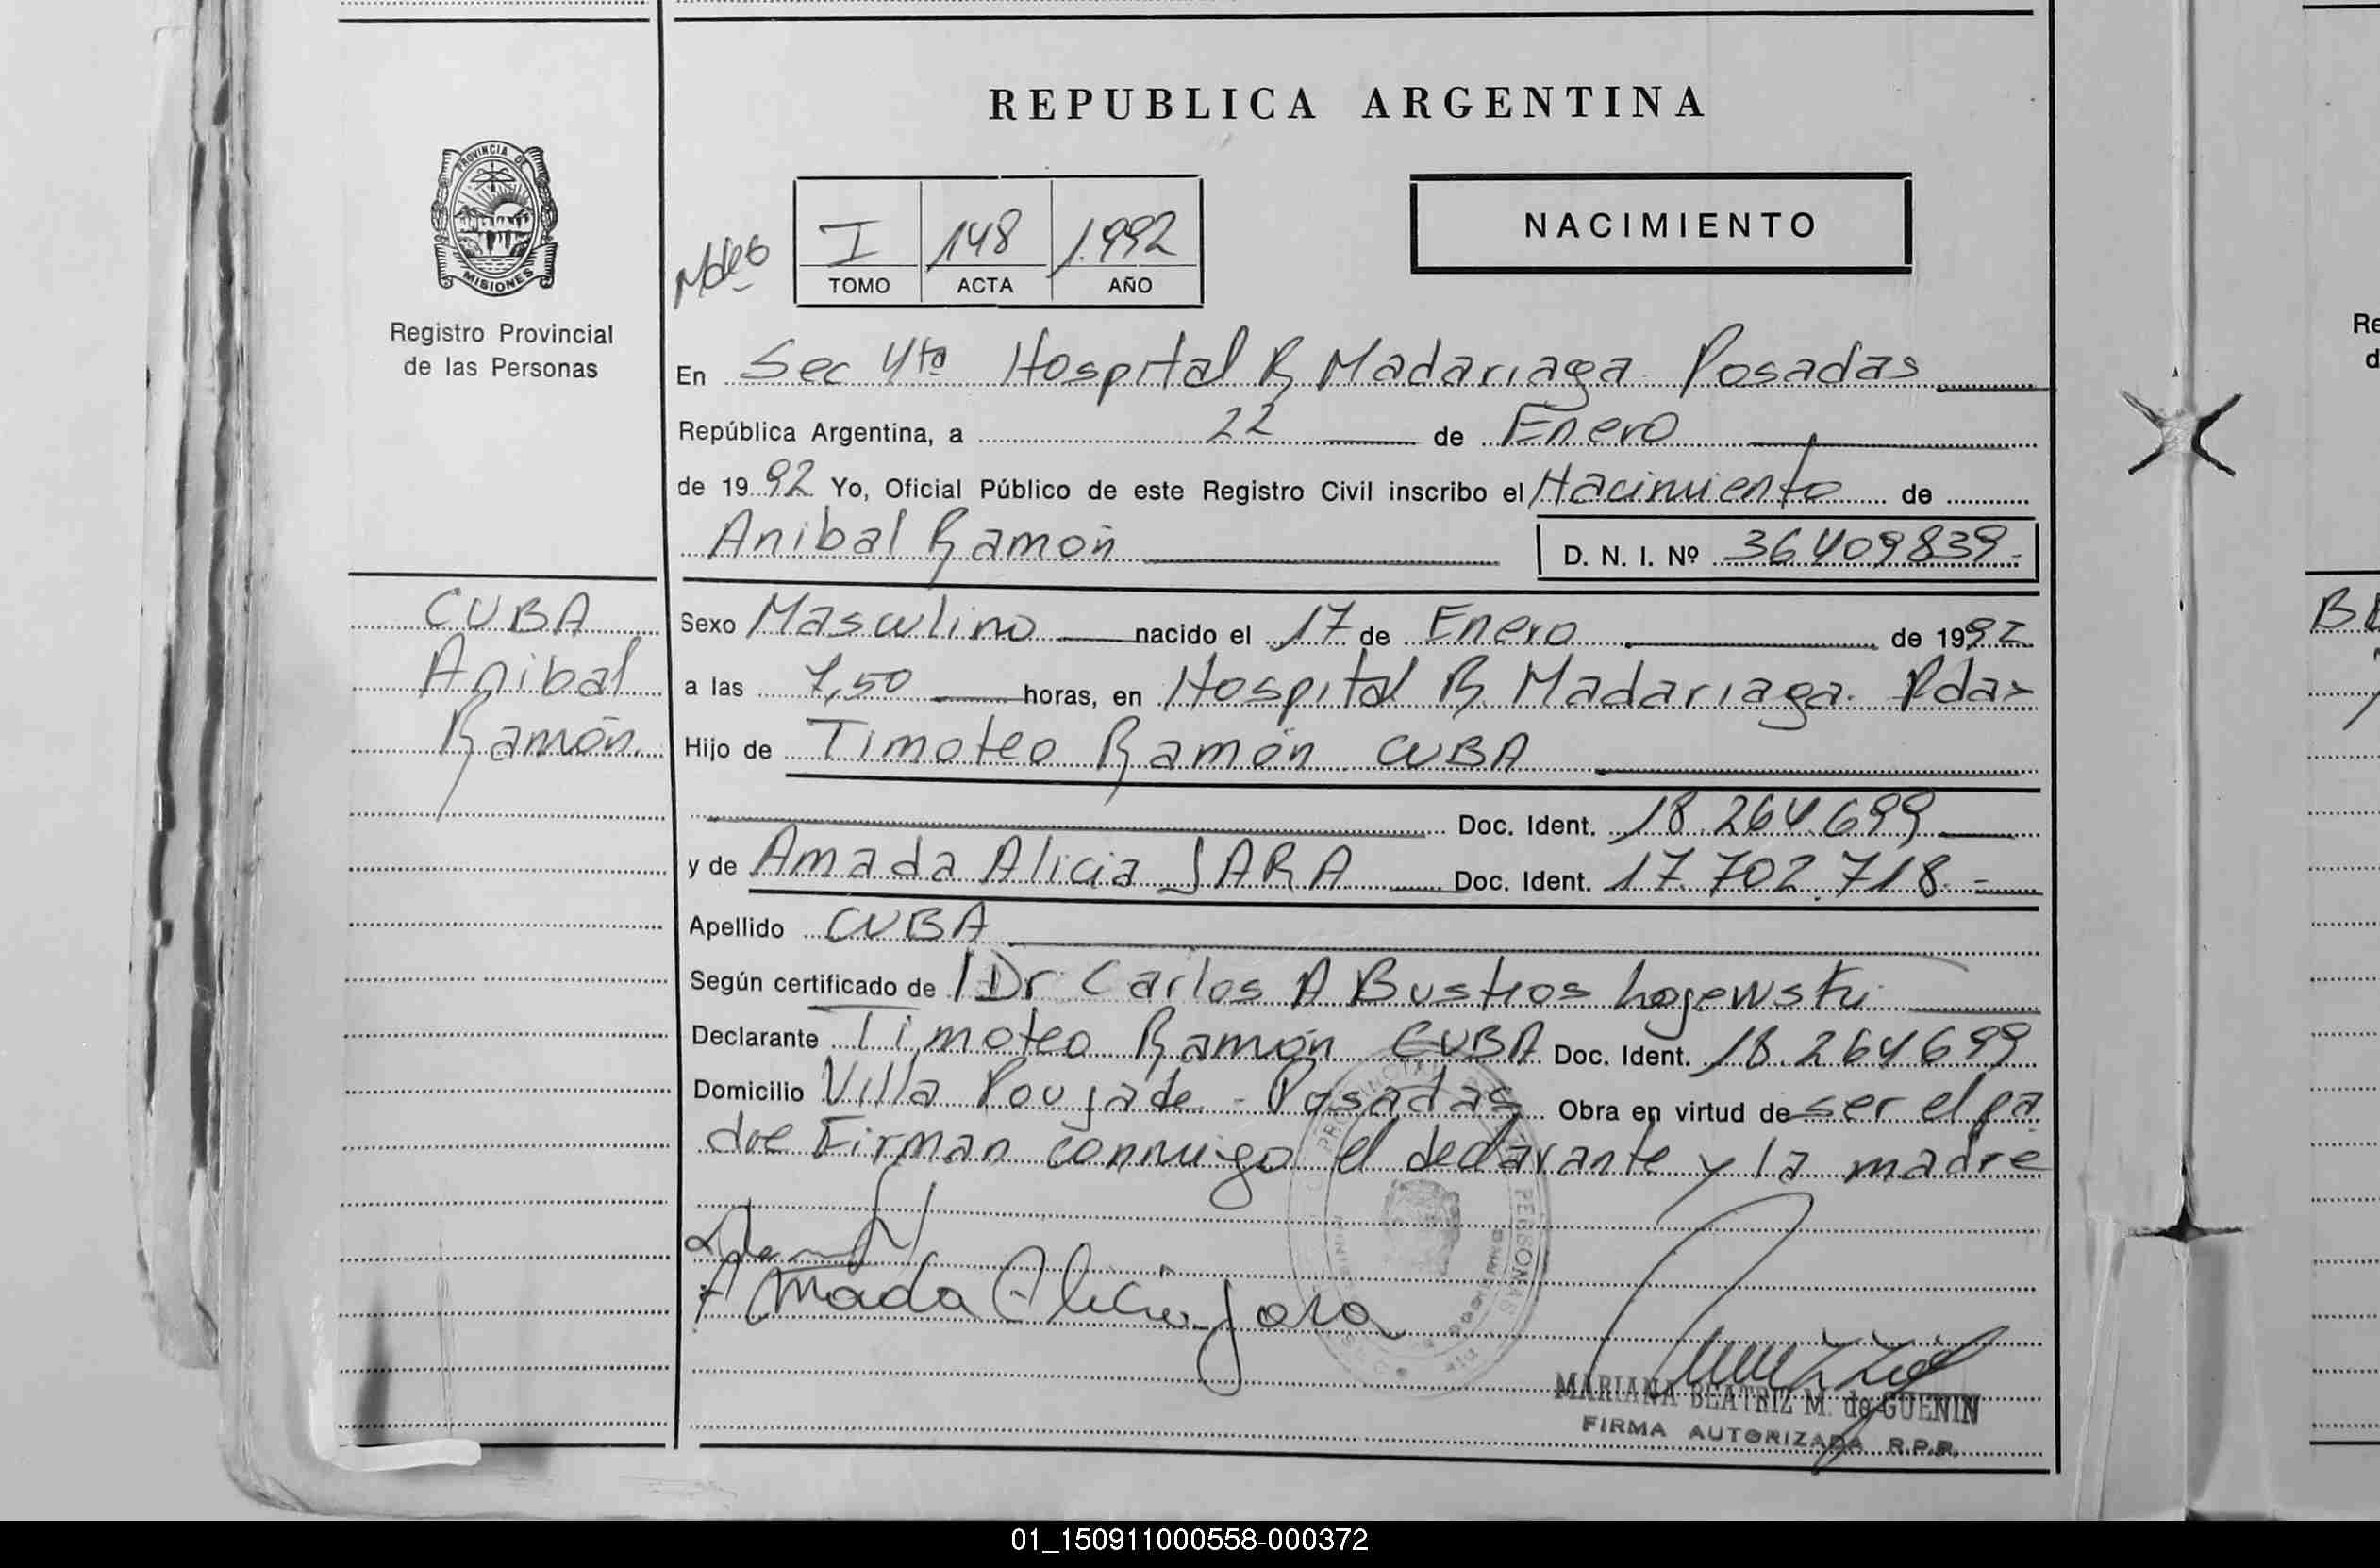 REPUBLICA ARGENTINA
PROVINCIA DE
MISIONES
Registro Provincial
de las Personas
I 148 1.992
TOMO ACTA AÑO
NACIMIENTO
En Sec 4ta Hospital R Madariaga Posadas
República Argentina, a 22 de Enero
de 19 92 Yo, Oficial Público de este Registro Civil inscribo el Nacimiento de
Anibal Ramón D. N. I. Nº 36409839
CUBA
Anibal
Ramón
Sexo Masculino nacido el 17 de Enero de 1992
a las 7,50 horas, en Hospital R Madariaga. Pdas
Hijo de Timoteo Ramón CUBA
Doc. Ident. 18.264.699
y de Amada Alicia JARA Doc. Ident. 17.702.718.-
Apellido CUBA
Según certificado de Dr Carlos A Bustos
Declarante Timoteo Ramón CUBA Doc. Ident. 18.264699
Domicilio Villa Poujade - Posadas Obra en virtud de ser el pa
dre Firman conmigo el declarante y la madre
Amada Alicia Jara
MARIANA BEATRIZ M. de GUENIN
FIRMA AUTORIZADA R.P.P.
Re
d
01_150911000558-000372